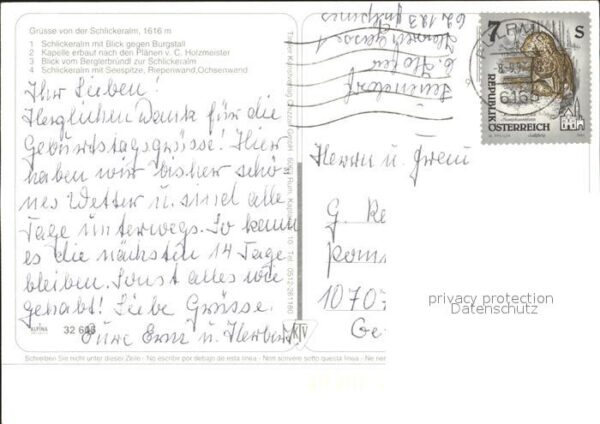 Grüsse von der Schlickeralm, 1616 m
1 Schlickeralm mit Blick gegen Burgstall
2 Kapelle erbaut nach den Plänen v. C. Holzmeister
3 Blick vom Berglerbründl zur Schlickeralm
4 Schlickeralm mit Seespitze, Riepenwand, Ochsenwand
Ihr Lieben!
Herzlichen Dank für die
Geburtstagsgrüsse! Hier
haben wir bisher schö-
nes Wetter u. sind alle
Tage unterwegs. So kann
es die nächsten 14 Tage
bleiben. Sonst alles wie
gehabt! Liebe Grüsse.
Eure Erna u. Herbert
ALPINA
32 6
Schreiben Sie nicht unter dieser Zeile - No escribir por debajo de esta linea - Non scrivere sotto questa linea - Ne
Tiroler Kunstverlag Chizzali GesmbH 6063 Rum, Kapo 10 Tel. 0512/261180
KTV
7 S
REPUBLIK
ÖSTERREICH
6166
Herrn u. Frau
G.
1070
privacy protection
Datenschutz